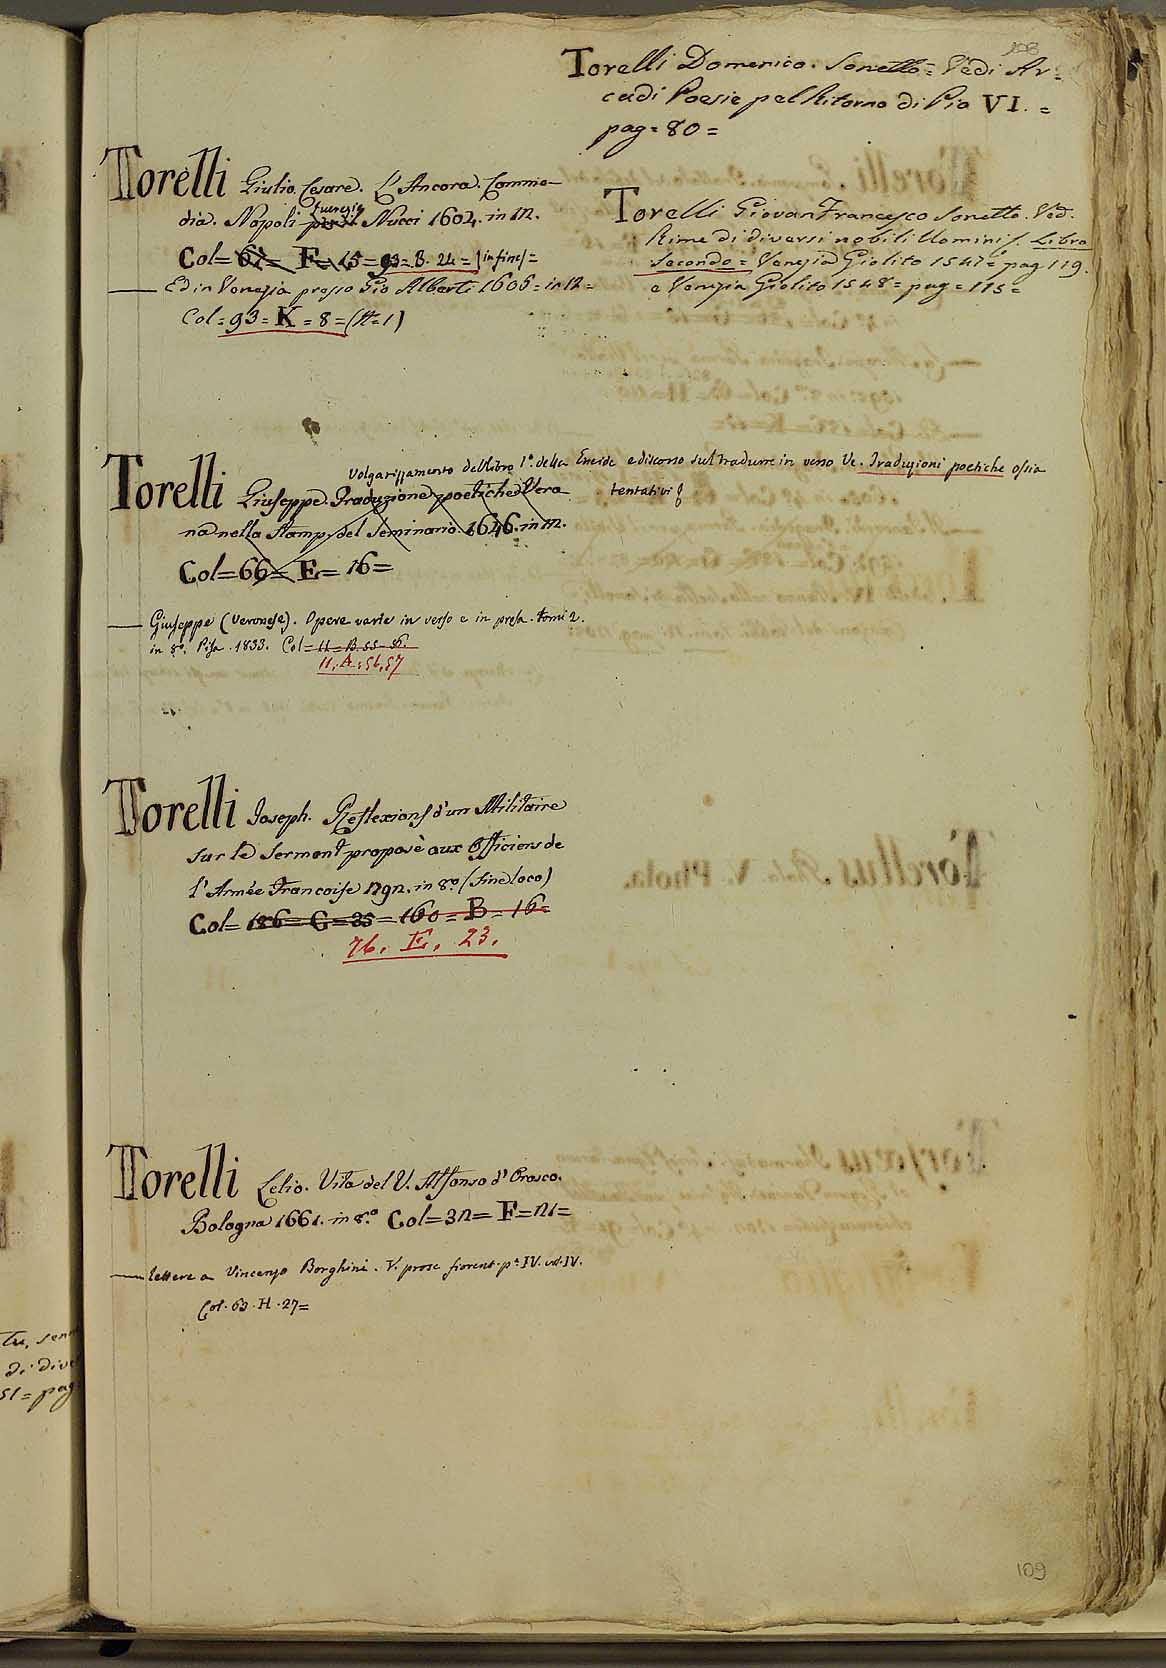 108
Torelli Domenico. Sonetto = Vedi Ar=
cadi Poesie pel Ritorno di Pio VI. =
pag = 80 =
Torelli Giulio Cesare. L'Ancora. Comme-
dia. Napoli Nucci 1604. in 12.
Col = 67 = F = 15 = 93 = B. 24 = (in fine) =
Ed in Venezia presso Gio Alberti 1606 = in 12 =
Col = 93 = K = 8 = (H = 1)
Torelli Giovan Francesco Sonetto. Ved.
Rime di diversi nobili Uomini Libro
Secondo = Venezia Giolito 1547 = pag 119.
e Venezia Giolito 1548 = pag = 115 =
Volgarizzamento del libro 1º della Eneide e discorso sul tradurre in verso Ve. Traduzioni poetiche ossia
tentativi
Torelli Giuseppe. Traduzione poetiche Vero-
na nella Stamp. del Seminario. 1646. in 12.
Col = 66 = E = 16 =
Giuseppe (Veronese). Opere varie in verso e in prosa. tomi 2.
in 8º. Pisa. 1833. Col = 11 = B. 55-56.
11. A. 56, 57
Torelli Joseph. Reflexions d'un Militaire
sur le Serment proposè aux Officiers de
l'Armée Francoise 1791. in 8º (sine loco)
Col = 186 = G = 35 = 160 = B = 16 =
76. E. 23.
Torelli Lelio. Vita del V. Alfonso d'Orosco.
Bologna 1661. in 8º Col = 32 = F = 21 =
lettere a Vincenzo Borghini. V. prose fiorent. pª IV. vol. IV.
Col. 63. H. 27 =
109